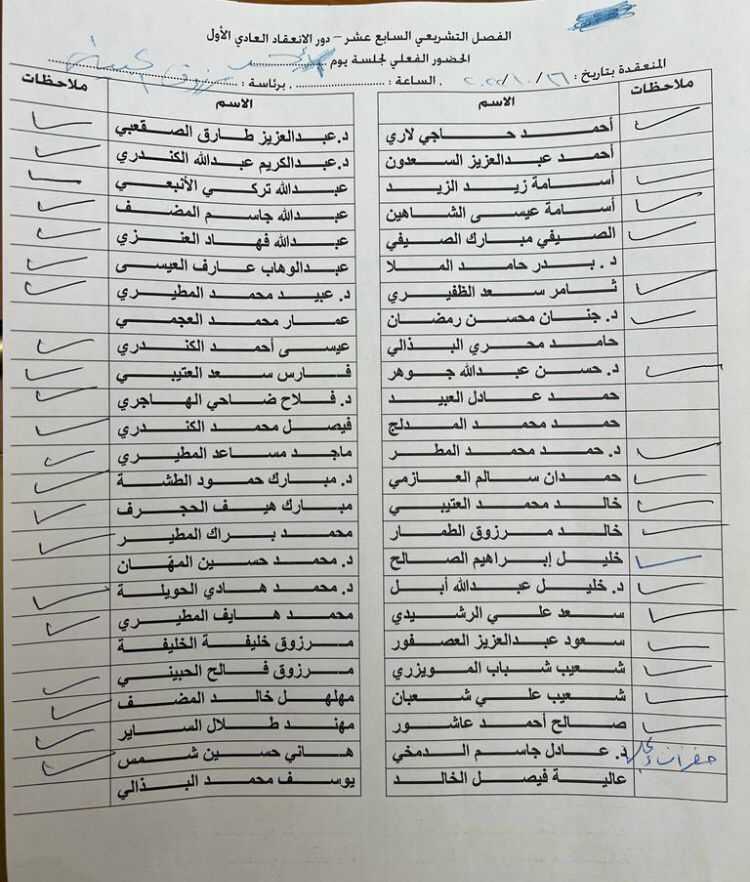 الفصل التشريعي السابع عشر – دور الانعقاد العادي الأول
الحضور الفعلي لجلسة يوم
المنعقدة بتاريخ : ٢٠٢٢/١٠/١٦ . الساعة : ........ . برئاسة : مرزوق الحبيني
ملاحظات
الاسم
أحمد حاجي لاري
أحمد عبدالعزيز السعدون
أسامة زيد الزيد
أسامة عيسى الشاهين
الصيفي مبارك الصيفي
د. بدر حامد الملا
ثامر سعد الظفيري
د. جنان محسن رمضان
حامد محري البذالي
د. حسن عبدالله جوهر
حمد عادل العبيد
حمد محمد المدلج
د. حمد محمد المطر
حمدان سالم العازمي
خالد محمد العتيبي
خالد مرزوق الطمار
خليل إبراهيم الصالح
د. خليل عبدالله أبل
سعد علي الرشيدي
سعود عبدالعزيز العصفور
شعيب شباب المويزري
شعيب علي شعبان
صالح أحمد عاشور
د. عادل جاسم الدمخي
عالية فيصل الخالد
الاسم
ملاحظات
د. عبدالعزيز طارق الصقعبي
د. عبدالكريم عبدالله الكندري
عبدالله تركي الأنبعي
عبدالله جاسم المضف
عبدالله فهاد العنزي
عبدالوهاب عارف العيسى
د. عبيد محمد المطيري
عمار محمد العجمي
عيسى أحمد الكندري
فارس سعد العتيبي
د. فلاح ضاحي الهاجري
فيصل محمد الكندري
ماجد مساعد المطيري
د. مبارك حمود الطشة
مبارك هيف الحجرف
محمد براك المطير
د. محمد حسين المهّان
د. محمد هادي الحويلة
محمد هايف المطيري
مرزوق خليفة الخليفة
مرزوق فالح الحبيني
مهلهل خالد المضف
مهند طلال الساير
هاني حسين شمس
يوسف محمد البذالي